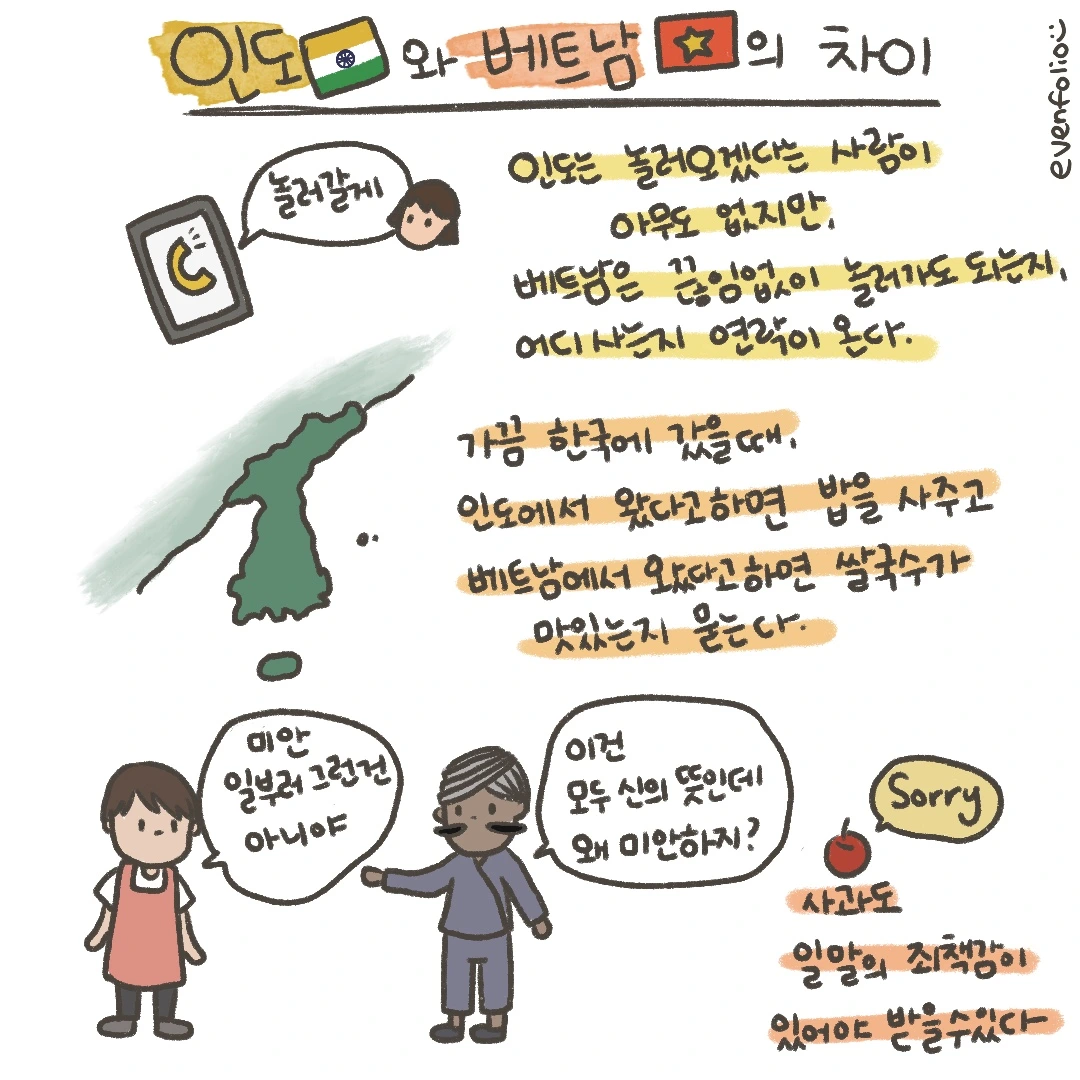 인도와 베트남의 차이
evenfolio
놀러갈게
인도는 놀러오겠다는 사람이
아무도 없지만,
베트남은 끊임없이 놀러가도 되는지,
어디사는지 연락이 온다.
가끔 한국에 갔을때,
인도에서 왔다고하면 밥을 사주고
베트남에서 왔다고하면 쌀국수가
맛있는지 묻는다.
미안
일부러 그런건
아니야
이건
모두 신의 뜻인데
왜 미안하지?
Sorry
사과도
일말의 죄책감이
있어야 받을수있다